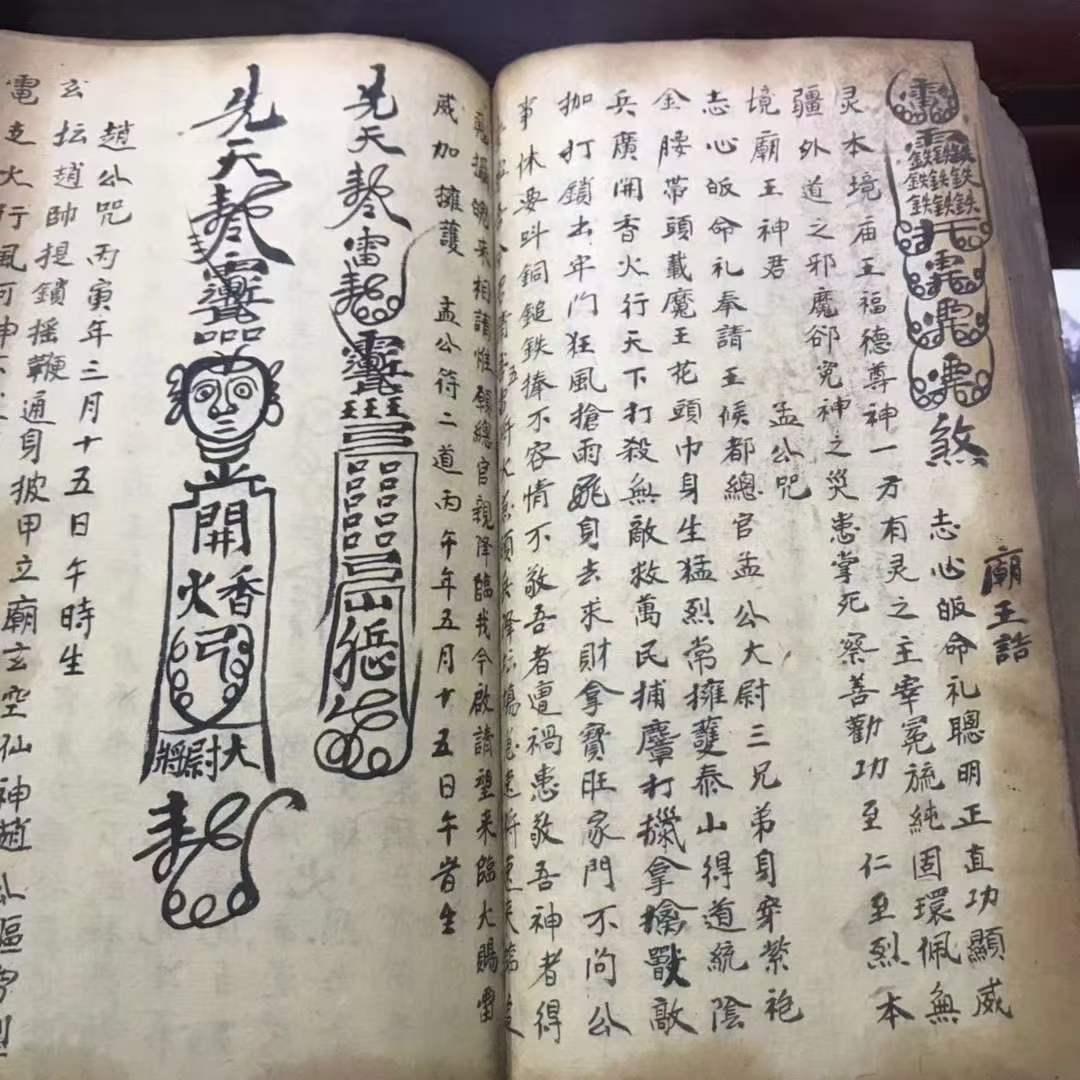 煞
廟王誥
志心皈命礼聰明正直功顯威
灵本境庙王福德尊神一方有灵之主宰冕旒純固環佩無
疆外道之邪魔卻究神之災患掌死察善勸功至仁至烈本
境廟王神君 孟公咒
志心皈命礼奉請王候都總官孟公大尉三兄弟身穿紫袍
金腰帶頭載魔王花頭巾身生猛烈常擁護泰山得道統陰
兵廣開香火行天下打殺無敵救萬民捕麞打獵拿擒獸敵
枷打鎖去牢门狂風搶雨飛身去求財拿寶旺家門不问公
事休要呌銅鎚鉄捧不容情不敬吾者遭禍患敬吾神者得
来相請惟願總官親降臨我今啟請望来臨大賜雷
威加擁護 孟公符二道丙午年五月十五日午时生
先天
雷
山
先天
開
香火
大尉將
趙公咒丙寅年三月十五日午時生
玄坛趙帥提鎖摇鞭通身披甲立廟玄空仙神趙
電走火行風